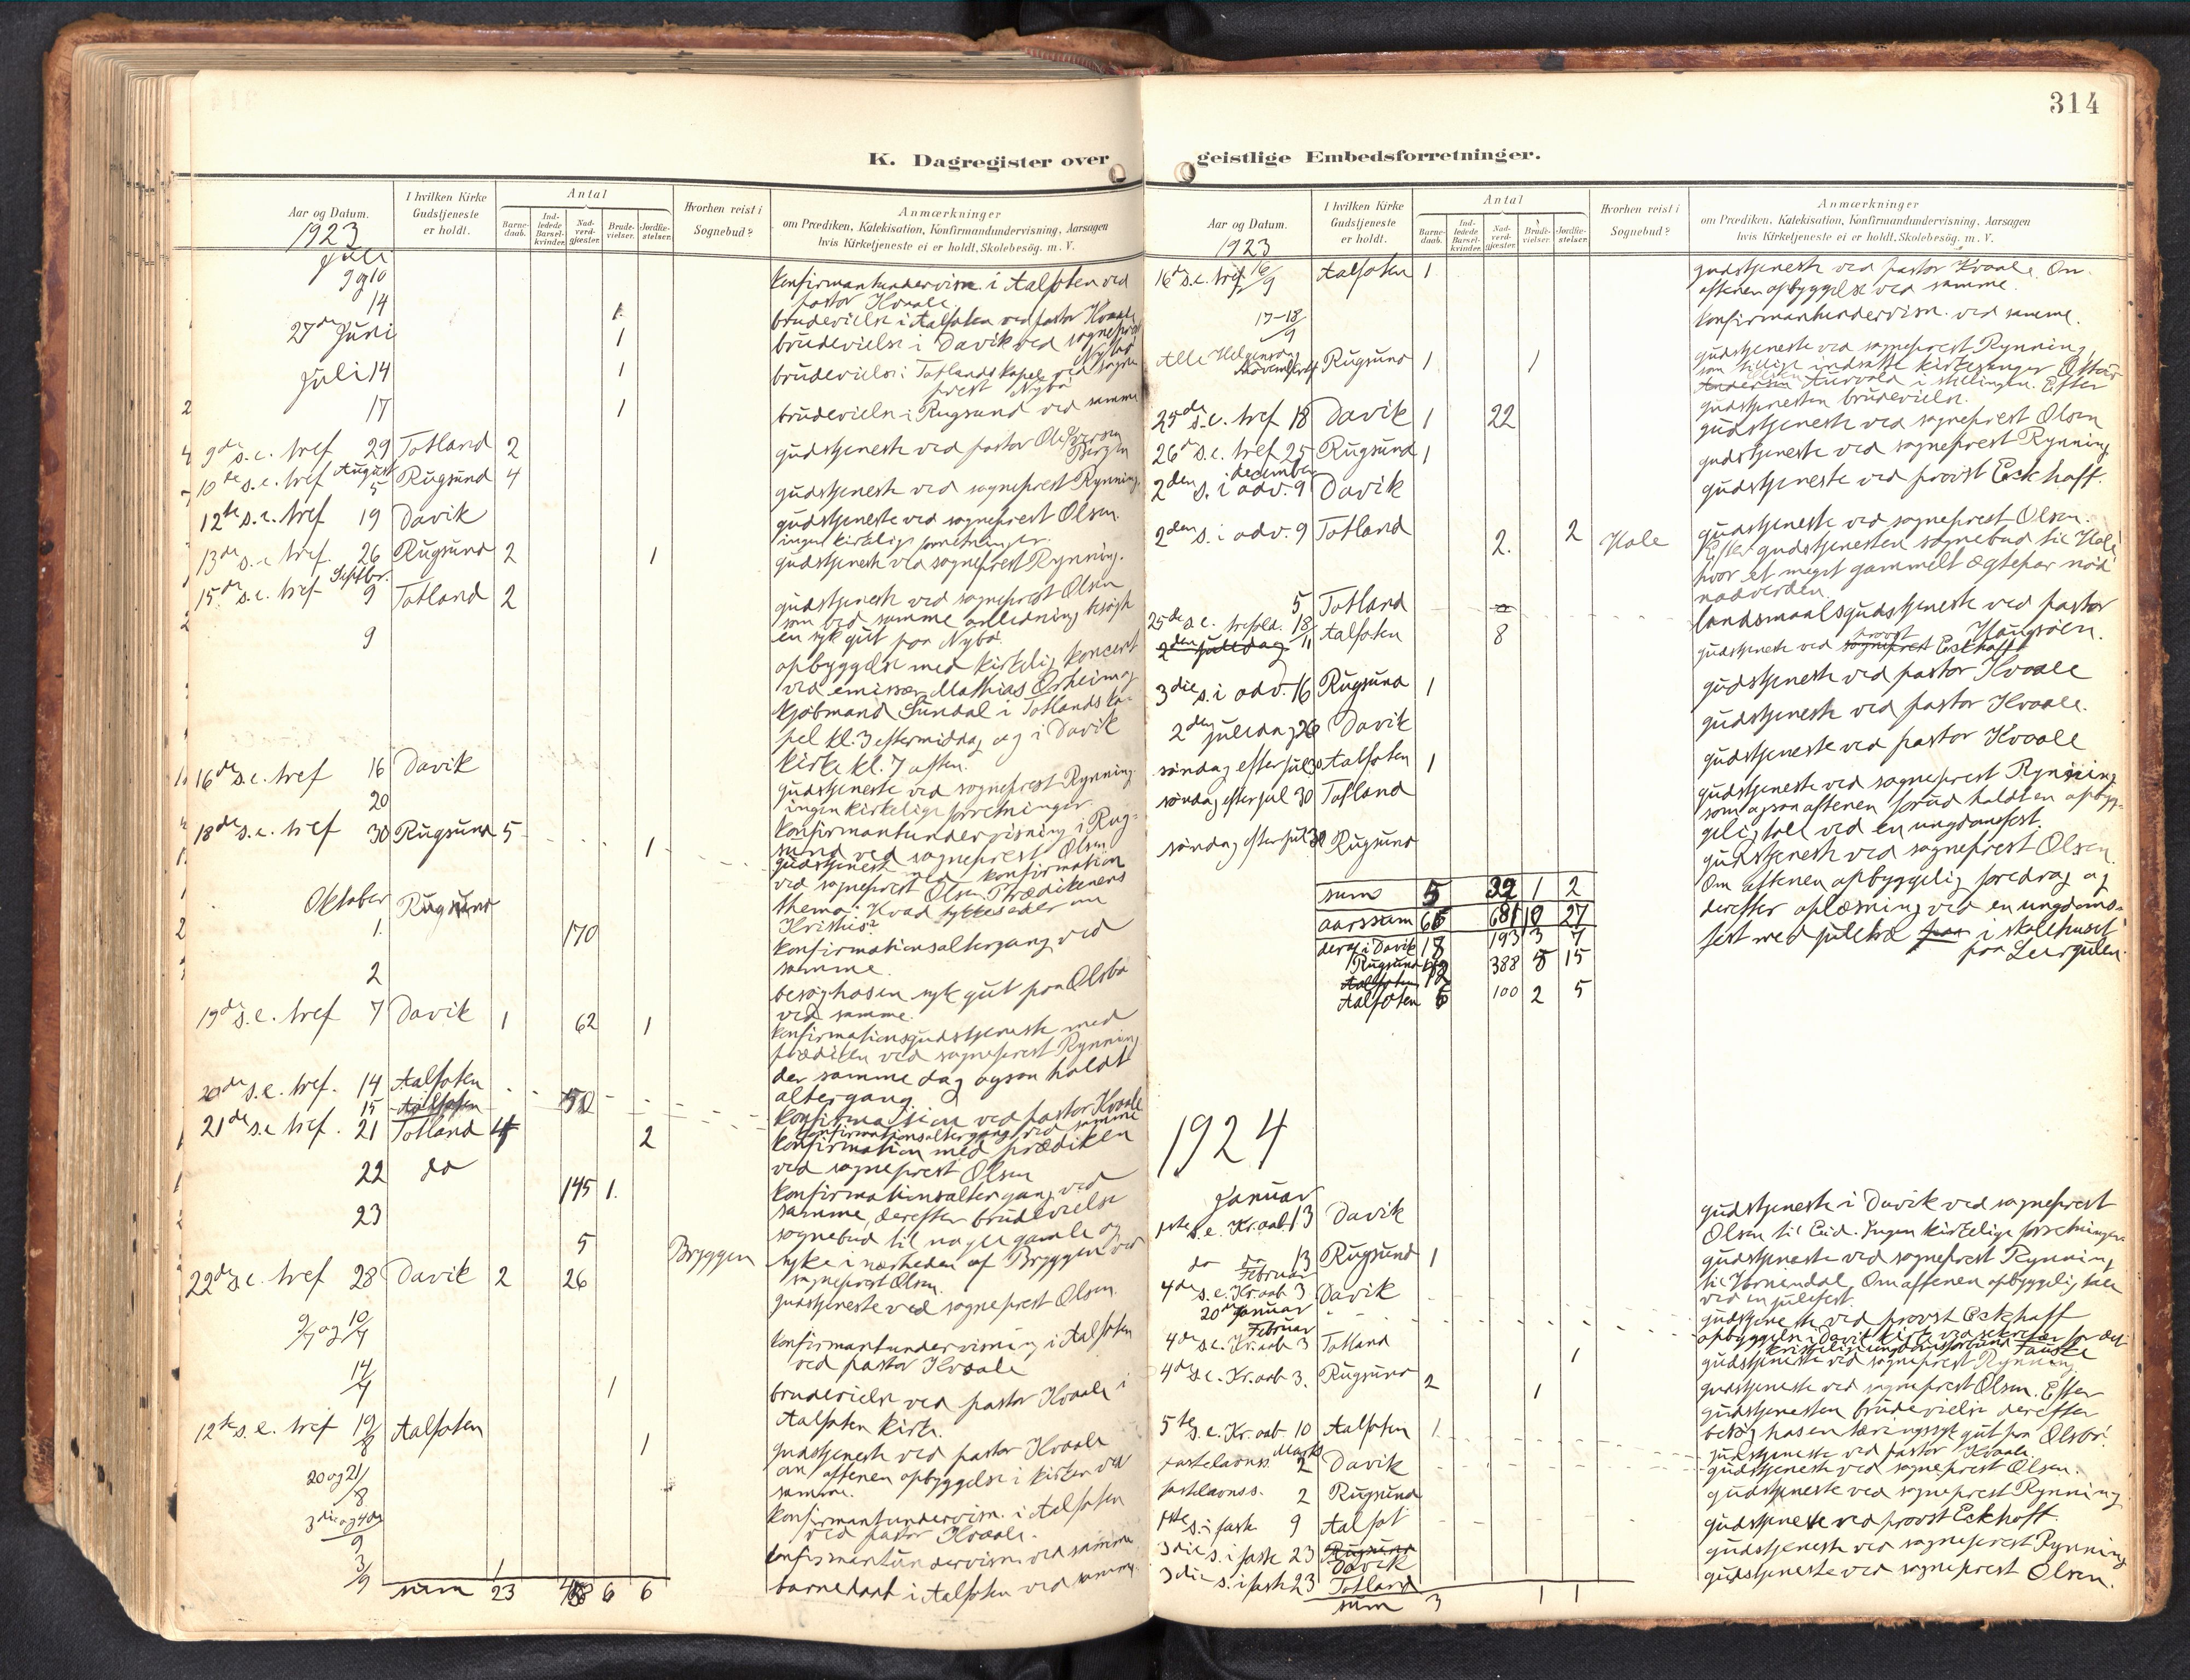 314
K. Dagregister over
geistlige Embedsforretninger.
Aar og Datum.
I hvilken Kirke Gudstjeneste er holdt.
Antal
Barnedaab.
Indledede Barselkvinder.
Nadverdgjester.
Brudevielser.
Jordfæstelser.
Hvorhen reist i Sognebud?
Anmærkninger
om Prædiken, Katekisation, Konfirmandundervisning, Aarsagen
hvis Kirketjeneste ei er holdt, Skolebesög. m. V.
1923
Juli
9 og 10 konfirmantundervisn. i Aalfoten ved
pastor Kvaale.
14 1 brudevielse i Aalfoten ved pastor Kvaale
27de Juni 1 brudevielse i Davik ved sogneprest
Nybö
Juli 14 1 brudevielse i Totlands kapel ved sogne
prest Nybö
17 1 brudevielse i Rugsund ved samme
9de s.e. tref 29 Totland 2 gudstjeneste ved pastor
Bergen
10de s.e. tref August 5 Rugsund 4 gudstjeneste ved sogneprest Rynning.
12te s.e. tref 19 Davik gudstjeneste ved sogneprest Olsen.
ingen kirkelige forretninger.
13de s.e. tref. 26 Rugsund 2 1 gudstjeneste ved sogneprest Rynning.
15de s.e. tref Septbr. 9 Totland 2 gudstjeneste ved sogneprest Olsen
som ved samme anledning besögte
en syk gut paa Nybö.
9 opbyggelse med kirkelig koncert
ved emissær Mathias Orheim og
Kjöbmand Sundal i Totlands ka-
pel kl. 3 eftermiddag og i Davik
kirke kl. 7 aften.
16de s.e. tref 16 Davik gudstjeneste ved sogneprest Rynning
ingen kirkelige forretninger.
20 konfirmantundervisning i Rug-
sund ved sogneprest Olsen
18de s.e. tref 30 Rugsund 5 1 gudstjeneste med konfirmation
ved sogneprest Olsen Prædikenens
thema: Hvad tykkes eder om
Kristus?
Oktober 1. Rugsund 170 konfirmationsaltergang ved
samme.
2 besög hos en syk gut paa Olsbö
ved samme.
19de s.e. tref 7 Davik 1 62 1 konfirmationsgudstjeneste med
prædiken ved sogneprest Rynning
der samme dag ogsaa holdt
altergang.
20de s.e. tref. 14 Aalfoten konfirmation ved pastor Kvaale
15 Aalfoten 50 konfirmationsaltergang ved samme
21de s.e. tref. 21 Totland 4 2 konfirmation med prædiken
ved sogneprest Olsen
22 do 145 1. konfirmationsaltergang ved
samme, derefter brudevielse
23 5 Bryggen sognebud til nogle gamle og
syke i nærheden af Bryggen ved
sogneprest Olsen.
22de s.e. tref 28 Davik 2 26 gudstjeneste ved sogneprest Olsen.
9/7 og 10/7 konfirmantundervisning i Aalfoten
ved pastor Kvaale
14/7 1 brudevielse ved pastor Kvaale i
Aalfoten kirke.
12te s.e. tref 19/8 Aalfoten 1 gudstjeneste ved pastor Kvaale
om aftenen opbyggelse i kirken ved
samme.
20 og 21/8 konfirmantundervisn. i Aalfoten
ved pastor Kvaale.
3die og 4de/9 konfirmantundervisn. ved samme
3/9 1 barnedaab i Aalfoten ved samme.
sum 23 6 6
Aar og Datum.
I hvilken Kirke Gudstjeneste er holdt.
Antal
Barnedaab.
Indledede Barselkvinder.
Nadverdgjester.
Brudevielser.
Jordfæstelser.
Hvorhen reist i Sognebud?
Anmærkninger
om Prædiken, Katekisation, Konfirmandundervisning, Aarsagen
hvis Kirketjeneste ei er holdt, Skolebesög. m. V.
1923
16de s.e. tref 16/9 Aalfoten 1 gudstjeneste ved pastor Kvaale. Om
aftenen opbyggelse ved samme.
17-18/9 konfirmantundervisn. ved samme.
Alle Helgensdag Rugsund 1 1 gudstjeneste ved sogneprest Rynning
som tillige indsatte kirkesanger
i stillingen. Efter
gudstjenesten brudevielse.
25de s.e. tref 18 Davik 1 22 gudstjeneste ved sogneprest Olsen
26de s.e. tref 25 Rugsund 1 gudstjeneste ved sogneprest Rynning
december
2den s. i adv. 9 Davik gudstjeneste ved provst Eckhoff.
2den s. i adv. 9 Totland 2. 2 Hole gudstjeneste ved sogneprest Olsen.
Efter gudstjenesten sognebud til Hole
hvor et meget gammelt ægtepar nöd
nadverden.
5 Totland landsmaalsgudstjeneste ved pastor
25de s.e. trefold. 18/11 Aalfoten 8 gudstjeneste ved provst Eckhoff
2den juledag
3die s. i adv. 16 Rugsund 1 gudstjeneste ved pastor Kvaale
gudstjeneste ved pastor Kvaale.
2den juledag 26 Davik gudstjeneste ved pastor Kvaale
söndag efter jul 30 Aalfoten 1 gudstjeneste ved sogneprest Rynning
söndag efter jul 30 Totland som ogsaa aftenen forud holdt en opbyg-
gelig tale ved en ungdomsfest.
söndag efter jul 30 Rugsund gudstjeneste ved sogneprest Olsen.
Om aftenen opbyggelig foredrag og
derefter oplæsning ved en ungdoms-
fest med juletræ i skolehuset
paa Leirgulen.
sum 5 32 1 2
aarssum 65 681 10 27
deraf i Davik 18 193 3 7
Rugsund 388 5 15
Aalfoten
Aalfoten 5 100 2 5
1924
Januar
1ste s.e. Kr. aab. 13 Davik gudstjeneste i Davik ved sogneprest
Olsen til Eid. Ingen kirkelige forretninger.
do do 13 Rugsund 1 gudstjeneste ved sogneprest Rynning
til Hornindal. Om aftenen opbyggelig tale
ved en julefest.
Februar
4de s.e. Kr. aab 3 Davik gudstjeneste ved provst Eckhoff
20de Januar opbyggelse i Davik kirke ved sekretær for det
kristelige ungdomsforbund Fauske
Februar
4de s.e. Kr. aab 3 Totland 1 gudstjeneste ved sogneprest Rynning
4de s.e. Kr. aab 3. Rugsund 2 1 gudstjeneste ved sogneprest Olsen. Efter
gudstjenesten brudevielse derefter
besög hos en tæringssyk gut paa Olsbö.
5te s.e. Kr. aab. 10 Aalfoten 1 gudstjeneste ved pastor Kvaale
Marts
fastelavnss. 2 Davik gudstjeneste ved sogneprest Olsen.
fastelavnss. 2 Rugsund gudstjeneste ved sogneprest Rynning
1ste s. i faste 9 Aalfot gudstjeneste ved provst Eckhoff.
3die s. i faste 23 Rugsund Davik gudstjeneste ved sogneprest Rynning
3die s. i faste 23 Totland gudstjeneste ved sogneprest Olsen.
sum 3 1 1